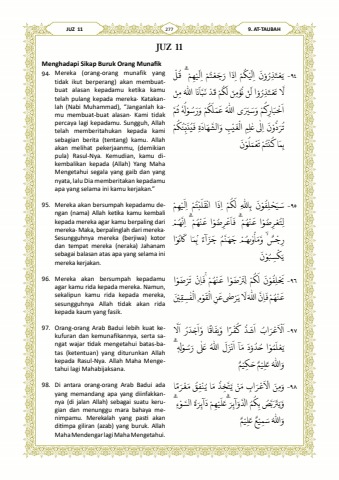 JUZ 11
277
9. AT-TAUBAH
JUZ 11
Menghadapi Sikap Buruk Orang Munafik
94. Mereka (orang-orang munafik yang
tidak ikut berperang) akan membuat-
buat alasan kepadamu ketika kamu
telah pulang kepada mereka- Katakan-
lah (Nabi Muhammad), “Janganlah ka-
mu membuat-buat alasan- Kami tidak
percaya lagi kepadamu. Sungguh, Allah
telah memberitahukan kepada kami
sebagian berita (tentang) kamu. Allah
akan melihat pekerjaanmu, (demikian
pula) Rasul-Nya. Kemudian, kamu di-
kembalikan kepada (Allah) Yang Maha
Mengetahui segala yang gaib dan yang
nyata, lalu Dia memberitakan kepadamu
apa yang selama ini kamu kerjakan.”
٩٤- يَعْتَذِرُوْنَ اِلَيْكُمْ اِذَا رَجَعْتُمْ اِلَيْهِمْ ۗ قُلْ
لَّا تَعْتَذِرُوْا لَنْ نُّؤْمِنَ لَكُمْ قَدْ نَبَّاَنَا اللّٰهُ مِنْ
اَخْبَارِكُمْ وَسَيَرَى اللّٰهُ عَمَلَكُمْ وَرَسُوْلُهٗ ثُمَّ
تُرَدُّوْنَ اِلٰى عٰلِمِ الْغَيْبِ وَالشَّهَادَةِ فَيُنَبِّئُكُمْ
بِمَا كُنْتُمْ تَعْمَلُوْنَ
95. Mereka akan bersumpah kepadamu de-
ngan (nama) Allah ketika kamu kembali
kepada mereka agar kamu berpaling dari
mereka- Maka, berpalinglah dari mereka-
Sesungguhnya mereka (berjiwa) kotor
dan tempat mereka (neraka) Jahanam
sebagai balasan atas apa yang selama ini
mereka kerjakan.
٩٥- سَيَحْلِفُوْنَ بِاللّٰهِ لَكُمْ اِذَا انْقَلَبْتُمْ اِلَيْهِمْ
لِتُعْرِضُوْا عَنْهُمْ ۗ فَاَعْرِضُوْا عَنْهُمْ ۗ اِنَّهُمْ
رِجْسٌ ۙ وَّمَأْوٰىهُمْ جَهَنَّمُ جَزَاۤءً ۢ بِمَا كَانُوْا
يَكْسِبُوْنَ
96. Mereka akan bersumpah kepadamu
agar kamu rida kepada mereka. Namun,
sekalipun kamu rida kepada mereka,
sesungguhnya Allah tidak akan rida
kepada kaum yang fasik.
٩٦- يَحْلِفُوْنَ لَكُمْ لِتَرْضَوْا عَنْهُمْ فَاِنْ تَرْضَوْا
عَنْهُمْ فَاِنَّ اللّٰهَ لَا يَرْضٰى عَنِ الْقَوْمِ الْفٰسِقِيْنَ
97. Orang-orang Arab Badui lebih kuat ke-
kufuran dan kemunafikannya, serta sa-
ngat wajar tidak mengetahui batas-ba-
tas (ketentuan) yang diturunkan Allah
kepada Rasul-Nya. Allah Maha Menge-
tahui lagi Mahabijaksana.
٩٧- اَلْاَعْرَابُ اَشَدُّ كُفْرًا وَّنِفَاقًا وَّاَجْدَرُ اَلَّا
يَعْلَمُوْا حُدُوْدَ مَآ اَنْزَلَ اللّٰهُ عَلٰى رَسُوْلِهٖ ۗ
وَاللّٰهُ عَلِيْمٌ حَكِيْمٌ
98. Di antara orang-orang Arab Badui ada
yang memandang apa yang diinfakkan-
nya (di jalan Allah) sebagai suatu keru-
gian dan menunggu mara bahaya me-
nimpamu. Merekalah yang pasti akan
ditimpa giliran (azab) yang buruk. Allah
Maha Mendengar lagi Maha Mengetahui.
٩٨- وَمِنَ الْاَعْرَابِ مَنْ يَّتَّخِذُ مَا يُنْفِقُ مَغْرَمًا
وَّيَتَرَبَّصُ بِكُمُ الدَّوَاۤىِٕرَ ۗ عَلَيْهِمْ دَاۤىِٕرَةُ السَّوْءِ ۗ
وَاللّٰهُ سَمِيْعٌ عَلِيْمٌ